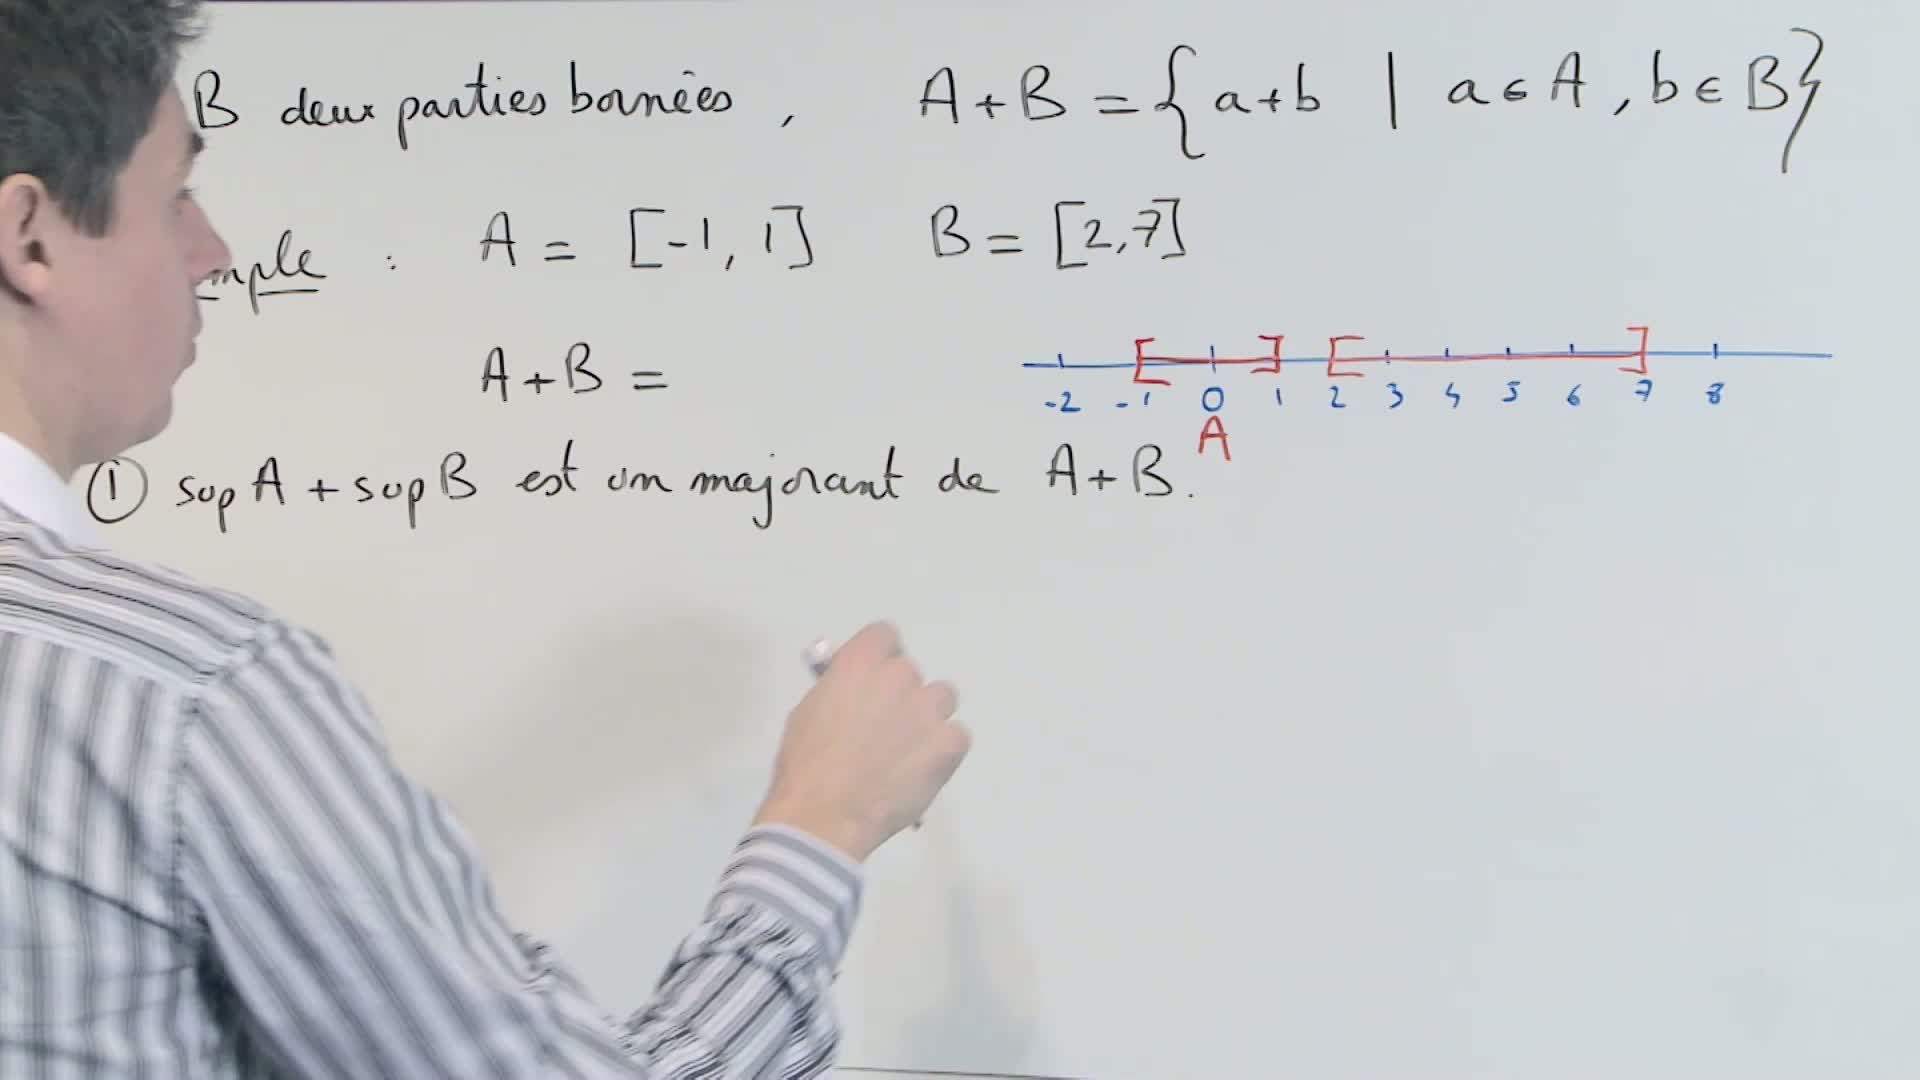 B deux parties bornées, A+B = {a+b | a∈A, b∈B}
mple : A = [-1, 1] B = [2,7]
A+B =
-2 -1 0 1 2 3 4 5 6 7 8
A
① sup A + sup B est un majorant de A+B.